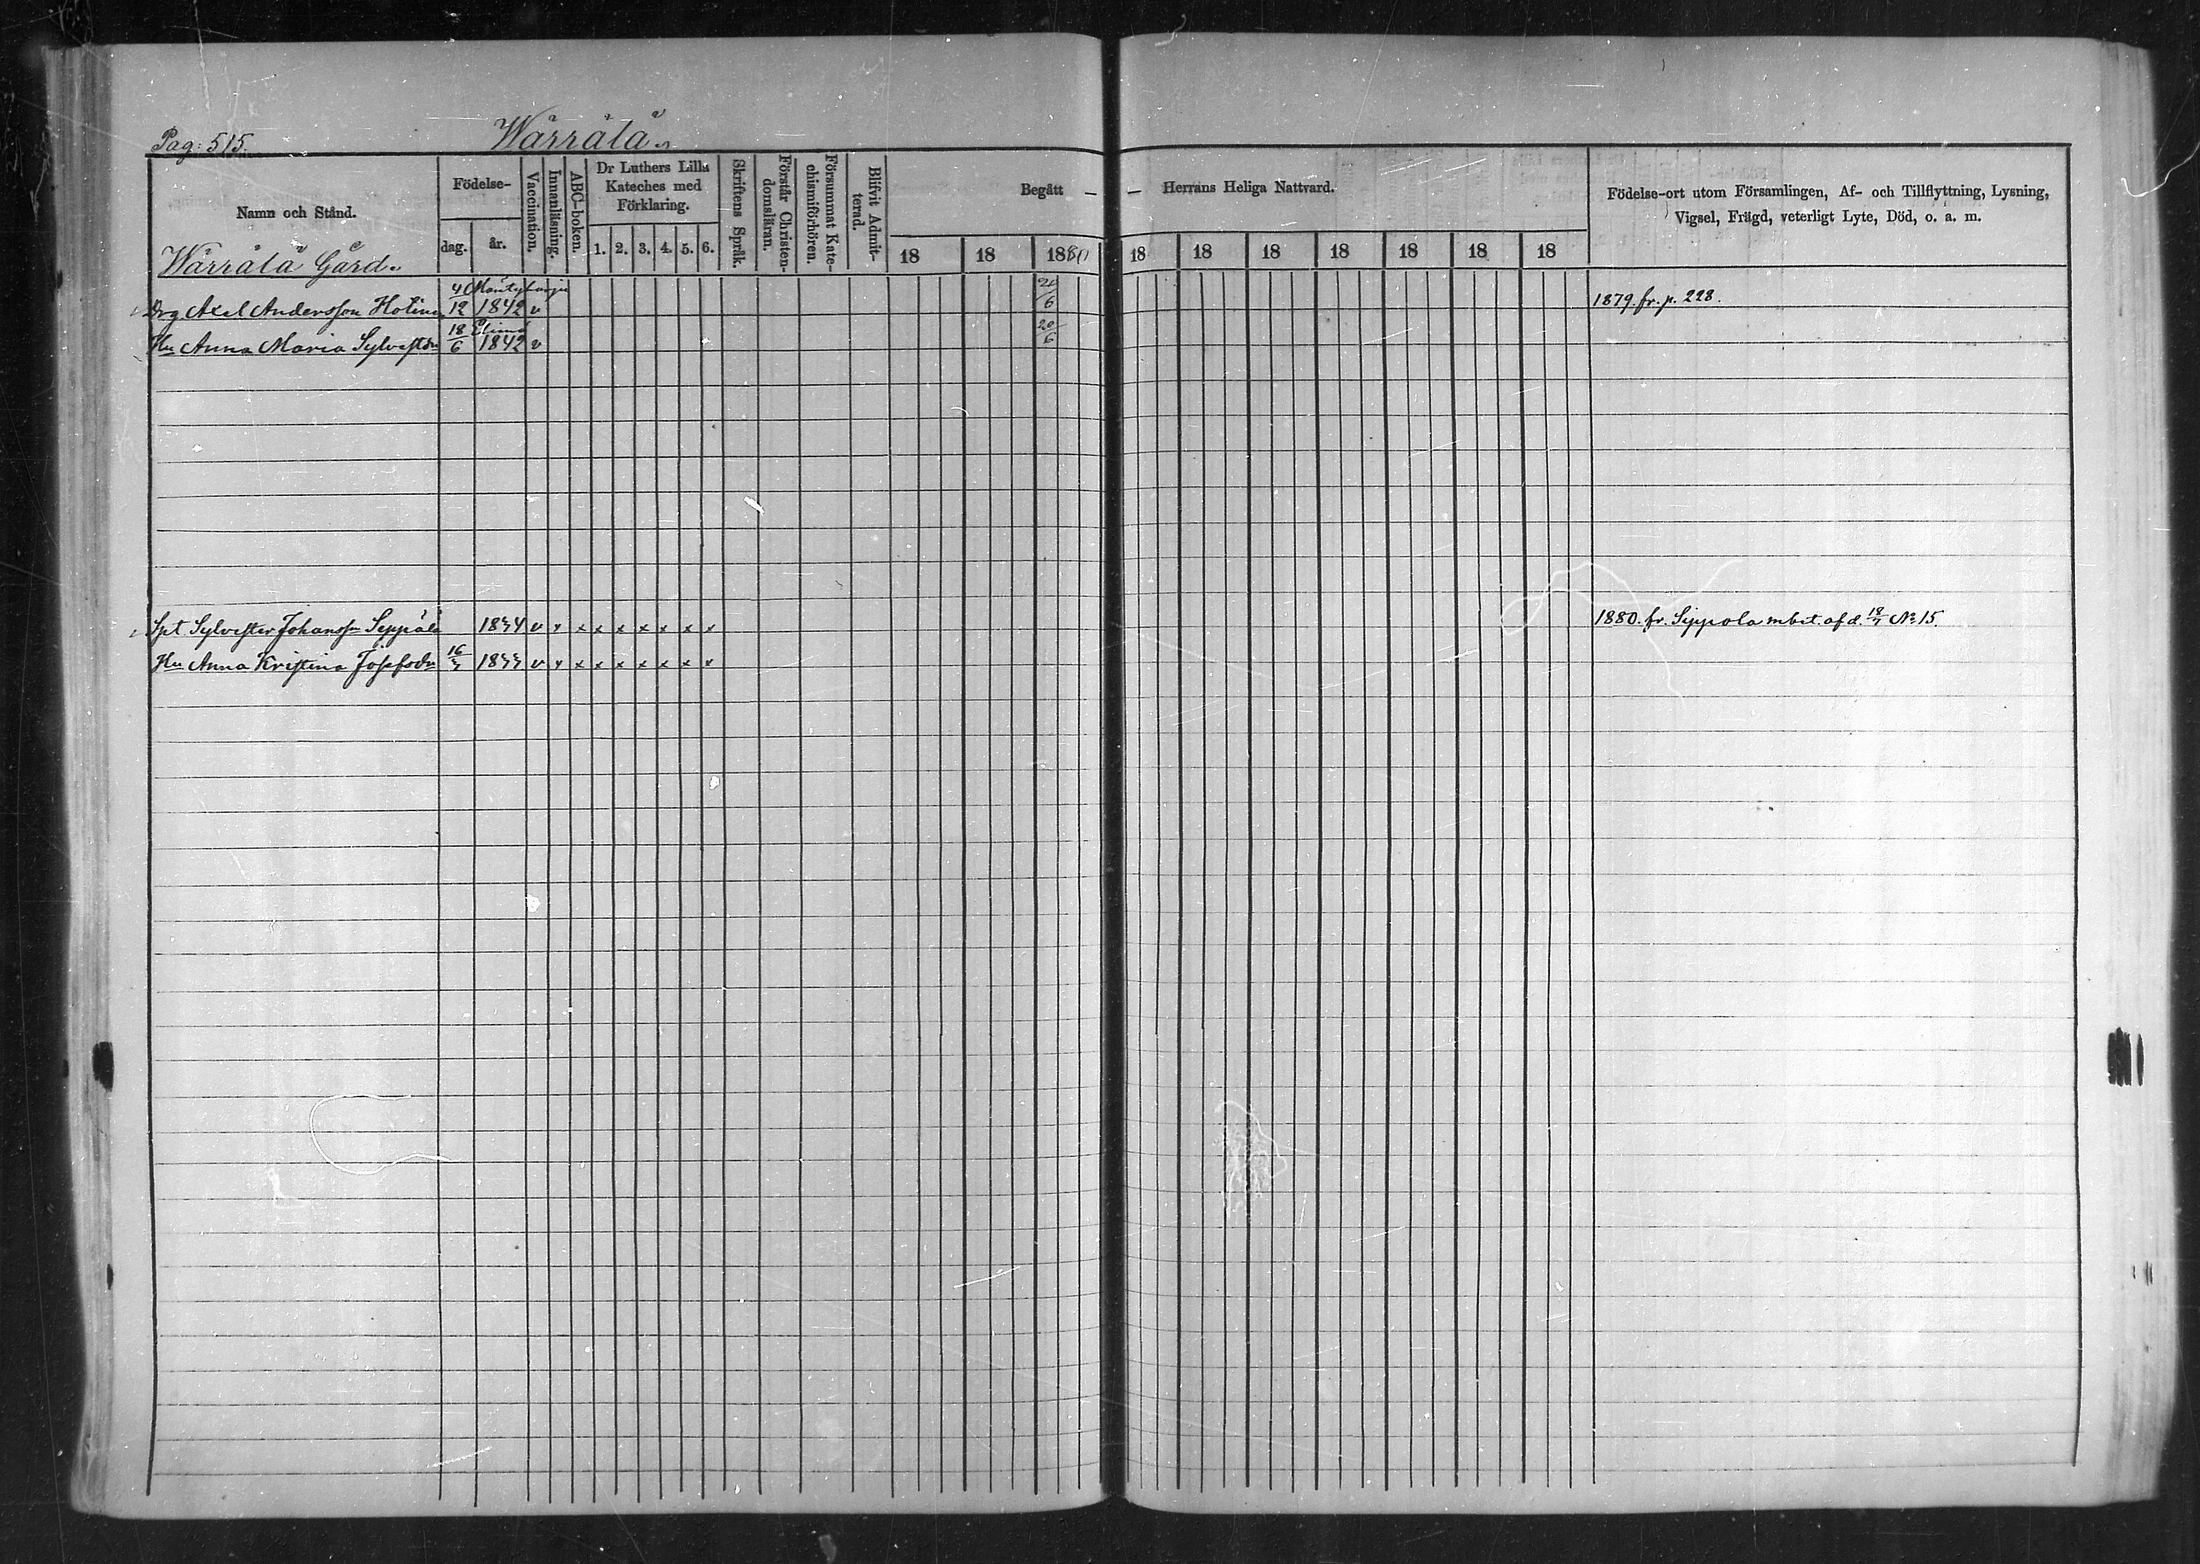 Pag: 515.
Wärrälä
Namn och Stånd.
Födelse-
dag.
år.
Vaccination.
Innanläsning.
ABC-boken.
Dr Luthers Lilla
Kateches med
Förklaring.
1. 2. 3. 4. 5. 6.
Skriftens Språk.
Förstår Christen-
domsläran.
Försummat Kate-
chismiförhören.
Blifvit Admit-
terad.
Begått — — Herrans Heliga Nattvard.
18 18 1880 18 18 18 18 18 18 18
Födelse-ort utom Församlingen, Af- och Tillflyttning, Lysning,
Vigsel, Frägd, veterligt Lyte, Död, o. a. m.
Wärrälä Gård
Mäntyharju
Drg Axel Andersson Hotinen 4/12 1842 v 20/6 1879 fr. p. 228.
Elimä
Hu Anna Maria Sylvestdr 18/6 1842 v 20/6
Spt Sylvester Johansson Seppälä 1844 v x x x x x x x x 1880. fr. Sippola mbet. af d. 18/7 No 15.
Hu Anna Kristina Josefsdr 16/7 18 v x x x x x x x x